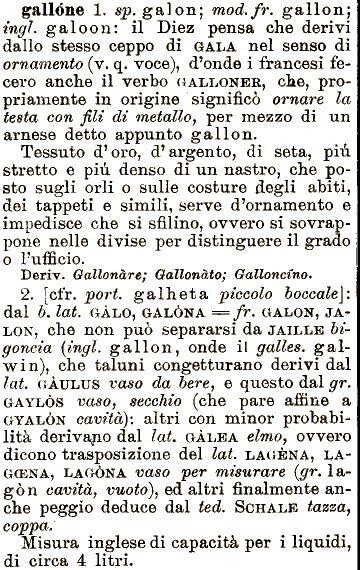 gallóne 1. sp. galon; mod. fr. gallon;
ingl. galoon: il Diez pensa che derivi
dallo stesso ceppo di GALA nel senso di
ornamento (v. q. voce), d'onde i francesi fe-
cero anche il verbo GALLONER, che, pro-
priamente in origine significò ornare la
testa con fili di metallo, per mezzo di un
arnese detto appunto gallon.
Tessuto d'oro, d'argento, di seta, piú
stretto e piú denso di un nastro, che po-
sto sugli orli o sulle costure degli abiti,
dei tappeti e simili, serve d'ornamento e
impedisce che si sfilino, ovvero si sovrap-
pone nelle divise per distinguere il grado
o l'ufficio.
Deriv. Gallonàre; Gallonàto; Galloncíno.
2. [cfr. port. galheta piccolo boccale]:
dal b. lat. GÀLO, GALÒNA = fr. GALON, JA-
LON, che non può separarsi da JAILLE bi-
goncia (ingl. gallon, onde il galles. gal-
win), che taluni congetturano derivi dal
lat. GÀULUS vaso da bere, e questo dal gr.
GAYLÒS vaso, secchio (che pare affine a
GYALÒN cavità): altri con minor probabi-
lità derivano dal lat. GÀLEA elmo, ovvero
dicono trasposizione del lat. LAGÈNA, LA-
GŒNA, LAGÒNA vaso per misurare (gr. la-
gòn cavità, vuoto), ed altri finalmente an-
che peggio deduce dal ted. SCHALE tazza,
coppa.
Misura inglese di capacità per i liquidi,
di circa 4 litri.